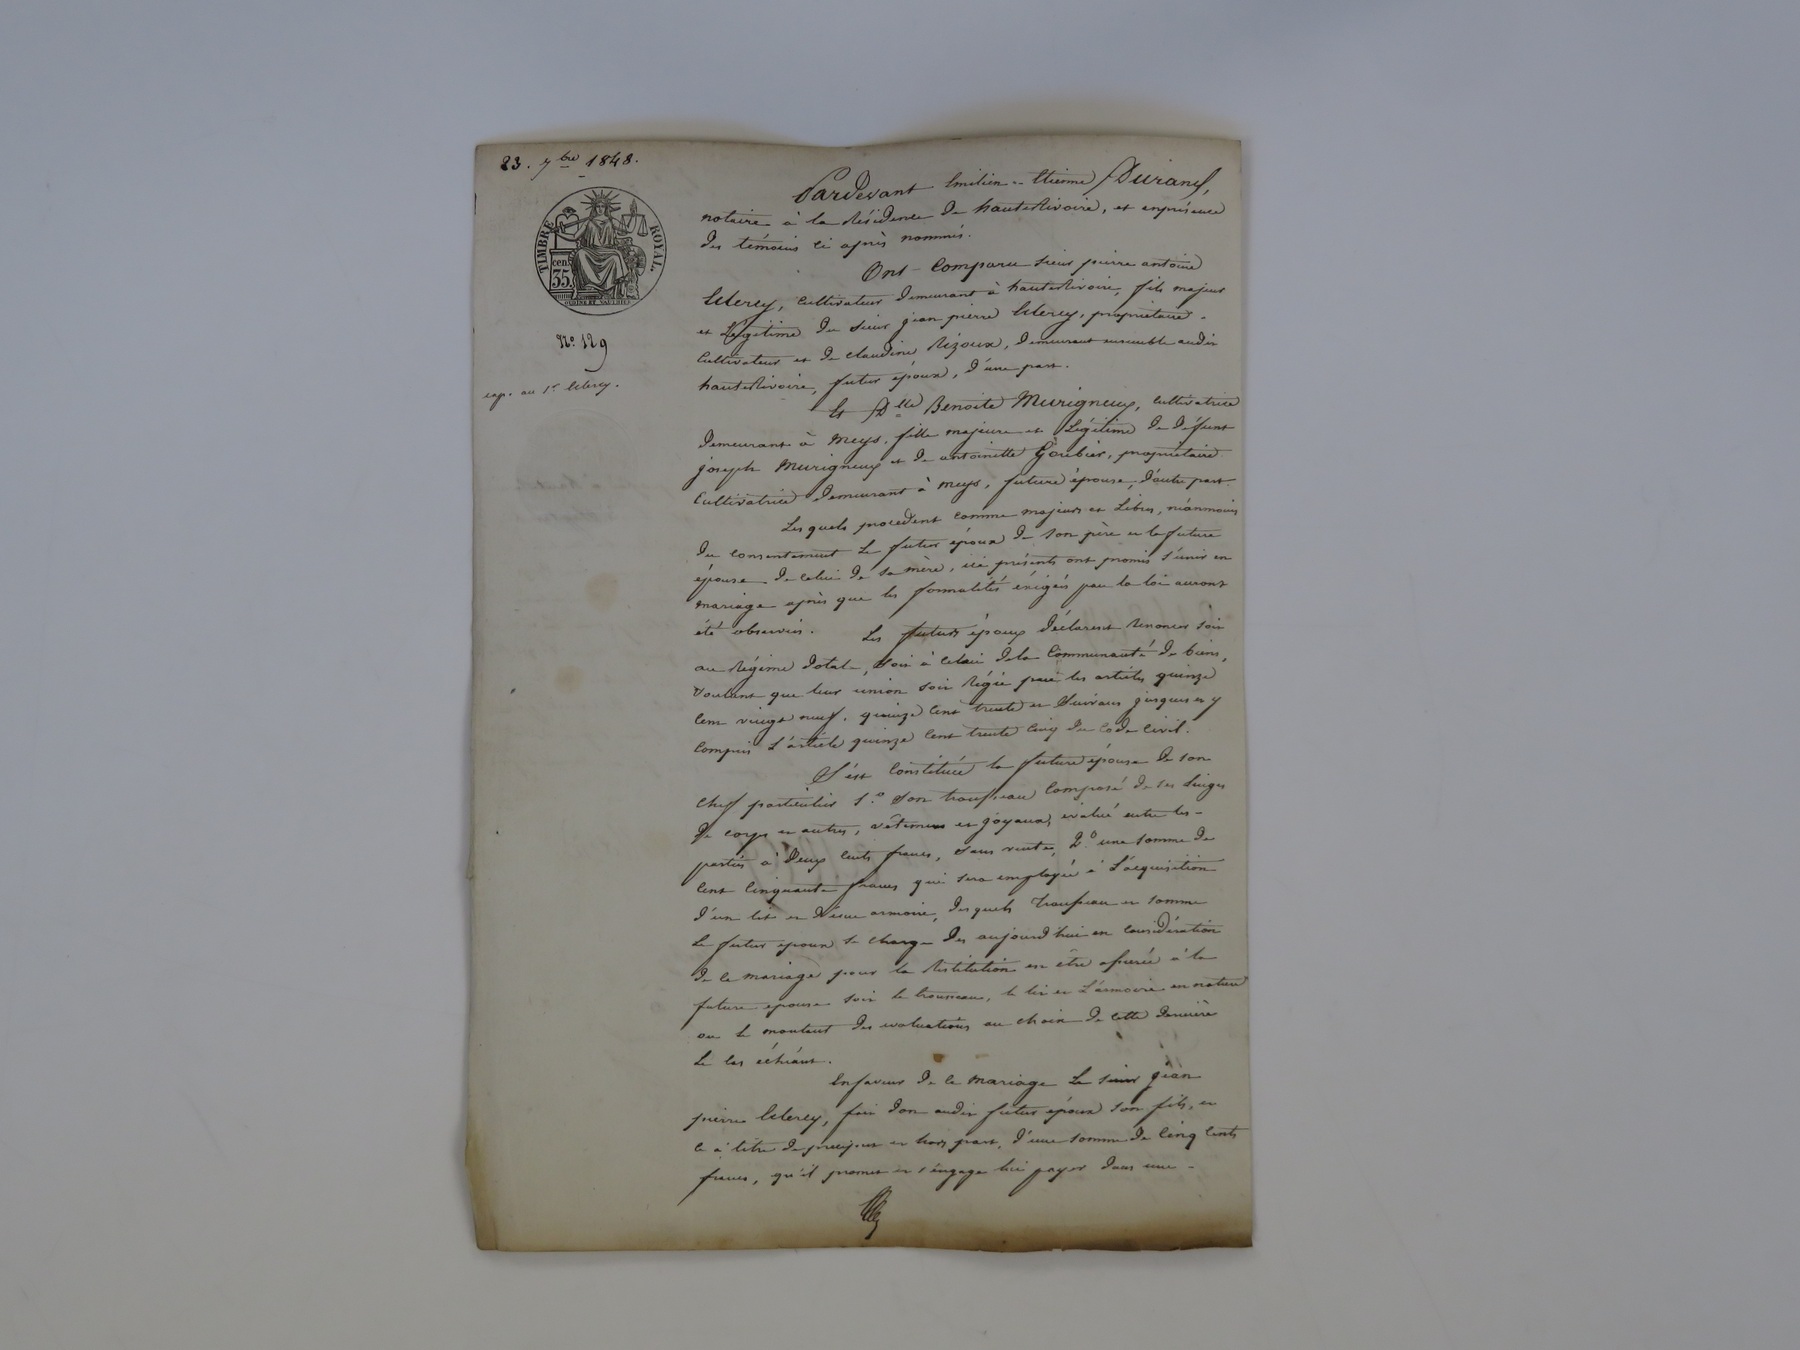 23. 7bre 1848.
TIMBRE ROYAL.
cen. 35.
No. 129
exp. au Sr. Clercy.
Pardevant Emilien-Etienne Durand,
notaire à la Résidence de hauterivoire, et en présence
des témoins ci après nommés.
Ont comparu sieur pierre antoine
Clercy, cultivateur demeurant à hauterivoire, fils majeur
et Légitime du sieur jean pierre Clercy, propriétaire.
cultivateur et de claudine Rizoux, demeurant ensemble audit
hauterivoire, futur époux, d'une part.
Et Dlle Benoite Murigneux, cultivatrice
demeurant à Meys, fille majeure et Légitime de défunt
joseph Murigneux et de antoinette Goubier, propriétaire
cultivatrice demeurant à meys, future épouse, d'autre part.
Lesquels procédent comme majeurs et Libres, néanmoins
du consentement le futur époux de son père et la future
épouse de celui de sa mère, ici présents ont promis s'unir en
mariage après que les formalités éxigés par la loi auront
été observées. Les futurs époux déclarent renoncer soit
au Régime dotal, soit à celui de la Communauté de biens,
voulant que leur union soit Régie par les articles quinze
cent vingt neuf, quinze cent trente et suivans jusques et y
compris l'article quinze cent trente cinq du code civil.
S'est constituée la future épouse de son
chef particulier 1.° son trousseau composé de ses linges
de corps et autres, vêtemens et joyaux, évalué entre les
parties à deux cents francs, sans vente, 2.° une somme de
cent cinquante francs qui sera employée à l'acquisition
d'un lit et d'une armoire, desquels trousseau et somme
le futur époux se charge dès aujourd'hui en considération
de ce mariage pour la Restitution en être opérée à la
future épouse soit le trousseau, le lit et l'armoire en nature
ou le montant des evaluations au choix de cette dernière
le cas échéant.
En faveur de ce mariage Le sieur jean
pierre Clercy, fait don audit futur époux son fils, et
ce à titre de preciput et hors part, d'une somme de cinq cents
francs, qu'il promet et s'engage lui payer dans une